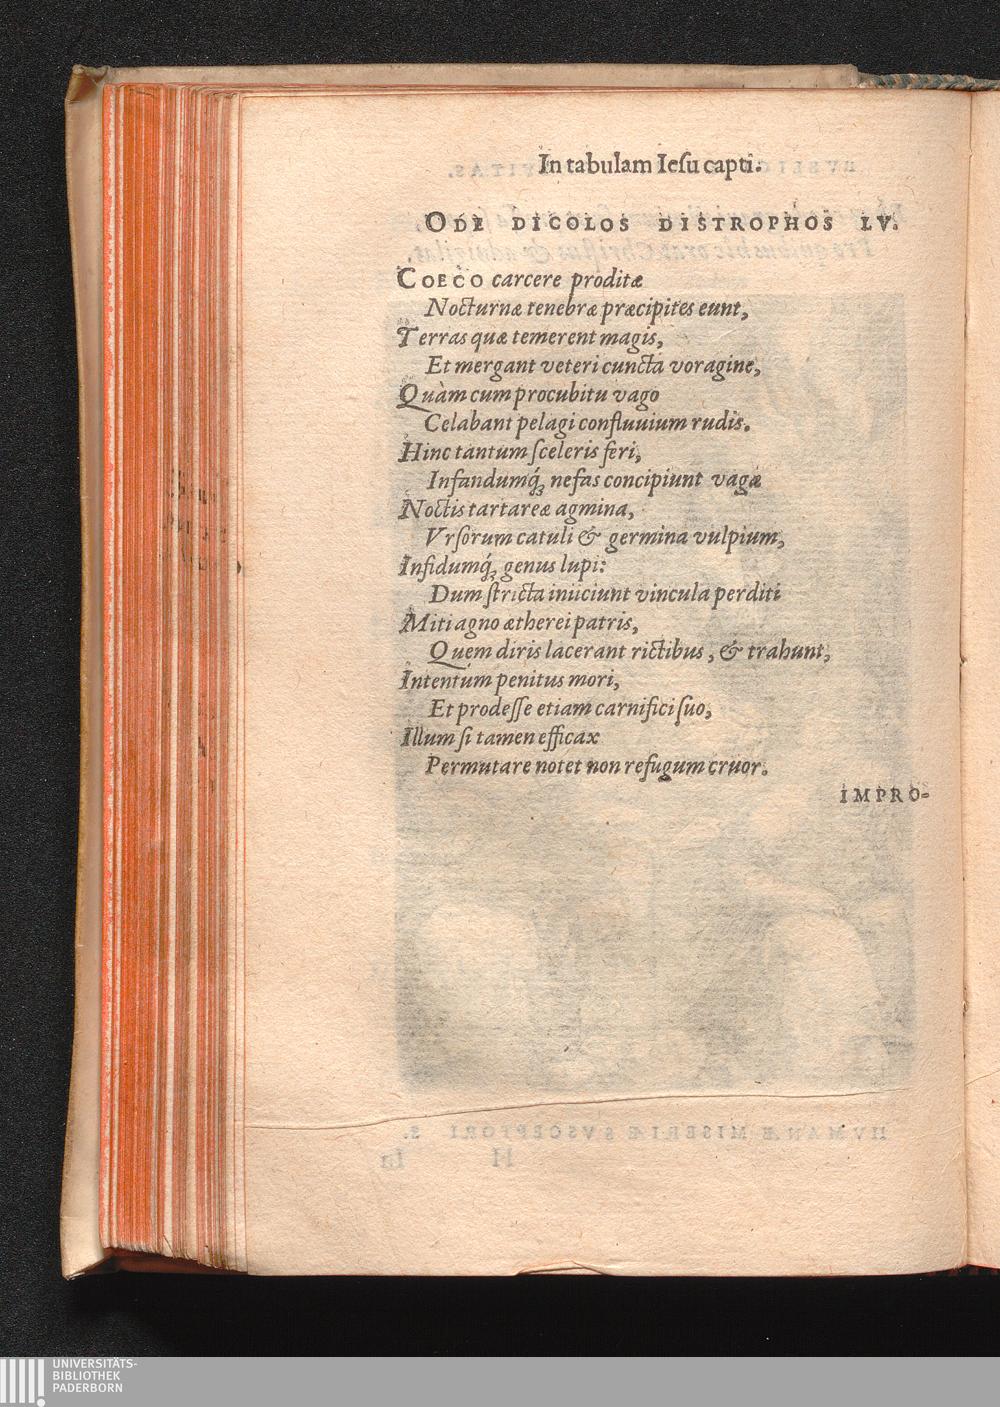 In tabulam Iesu capti.
ODE DICOLOS DISTROPHOS LV.
COECO carcere proditæ
Nocturnæ tenebræ præcipites eunt,
Terras quæ temerent magis,
Et mergant veteri cuncta voragine,
Quàm cum procubitu vago
Celabant pelagi confluuium rudis.
Hinc tantum ſceleris feri,
Infandumq́; nefas concipiunt vagæ
Noctis tartareæ agmina,
Vrſorum catuli & germina vulpium,
Infidumq́; genus lupi:
Dum ſtricta iniiciunt vincula perditi
Miti agno ætherei patris,
Quem diris lacerant rictibus, & trahunt,
Intentum penitus mori,
Et prodeſſe etiam carnifici ſuo,
Illum ſi tamen efficax
Permutare notet non refugum cruor.
IMPRO-
UNIVERSITÄTS-
BIBLIOTHEK
PADERBORN